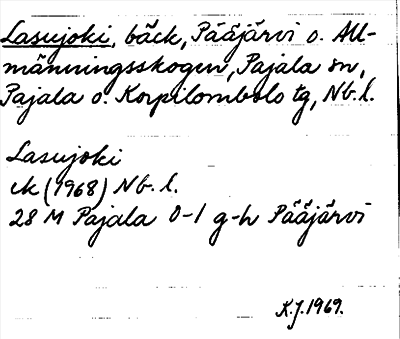 Lasujoki, bäck, Pääjärvi o. All-
männingsskogen, Pajala sn,
Pajala o. Korpilombolo tg, Nb. l.
Lasujoki
ek (1968) Nb. l.
28 M Pajala 0-1 g-h Pääjärvi
K.J. 1969.